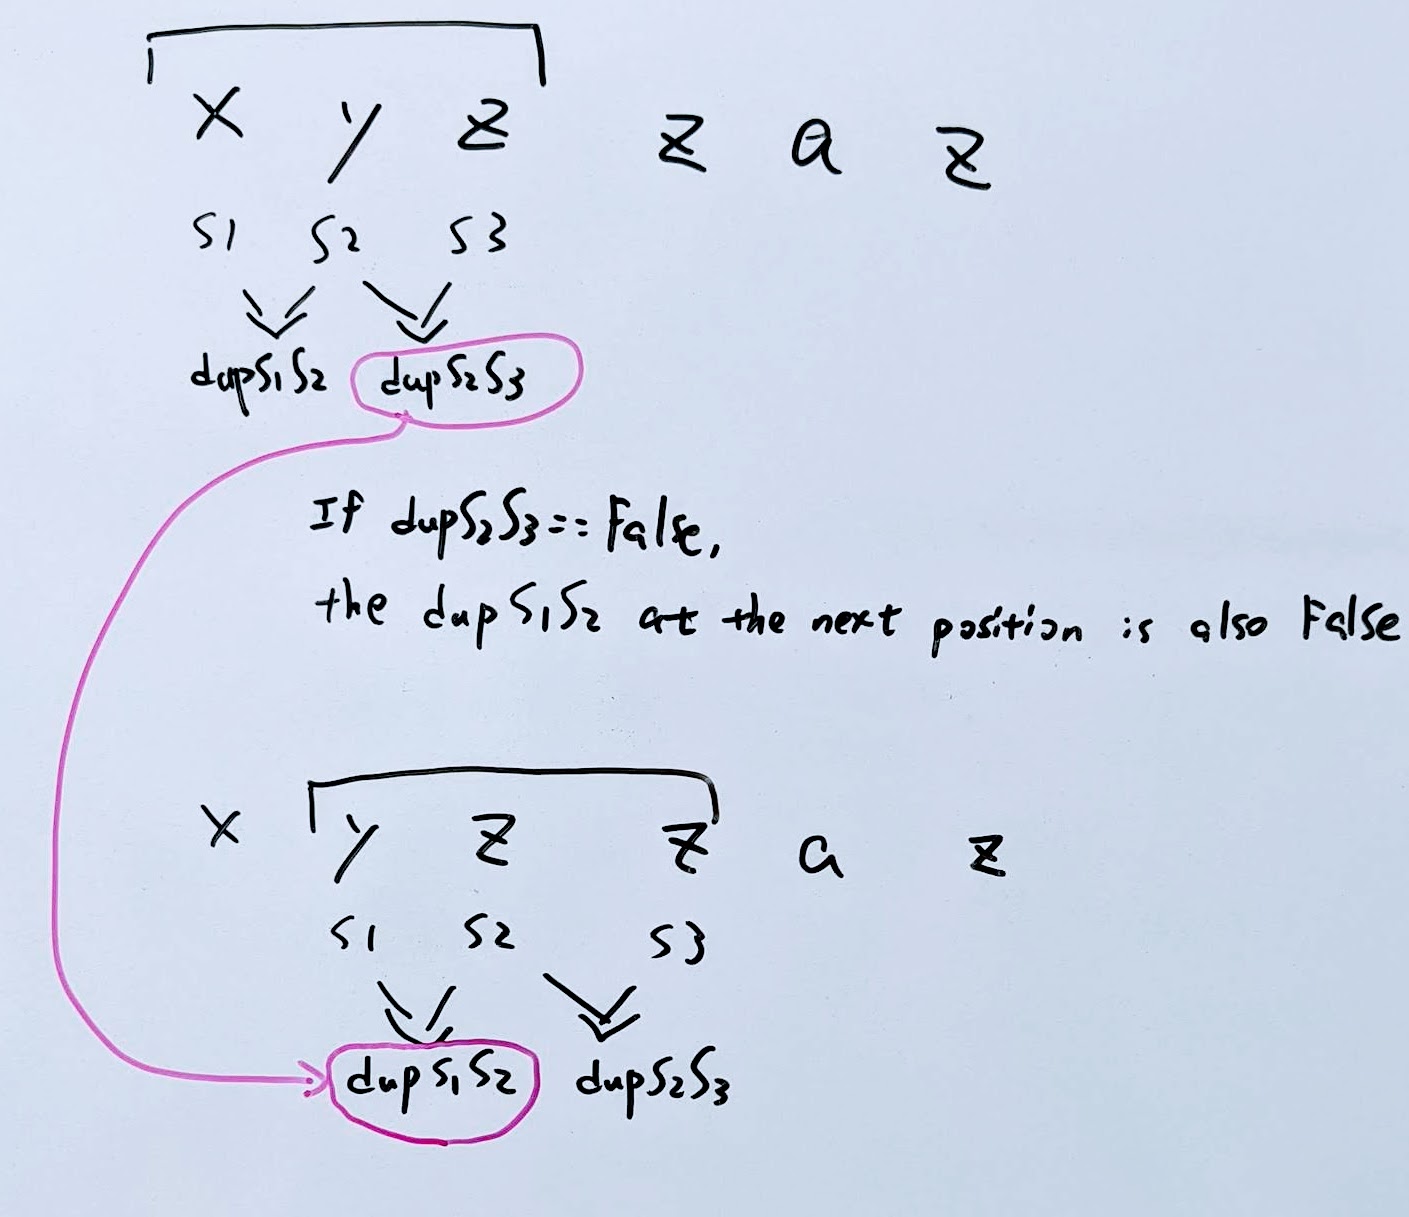 x y z z a z
S1 S2 S3
dupS1S2 dupS2S3
If dupS2S3==False,
the dupS1S2 at the next position is also False
x y z z a z
S1 S2 S3
dupS1S2 dupS2S3